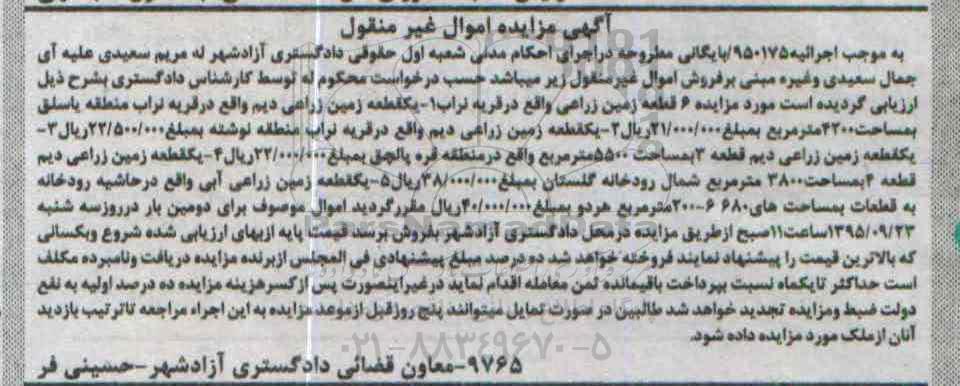 آگهی مزایده اموال غیر منقول
به موجب اجرائیه۹۵۰۱۷۵/بایگانی مطروحه دراجرای احکام مدنی شعبه اول حقوقی دادگستری آزادشهر له مریم سعیدی علیه آی
جمال سعیدی وغیره مبنی برفروش اموال غیرمنقول زیر میباشد حسب درخواست محکوم له توسط کارشناس دادگستری بشرح ذیل
ارزیابی گردیده است مورد مزایده ۶ قطعه زمین زراعی واقع درقریه نراب۱-یکقطعه زمین زراعی دیم واقع درقریه نراب منطقه یاسلق
بمساحت۴۲۰۰مترمربع بمبلغ۲۱/۰۰۰/۰۰۰ریال۲-یکقطعه زمین زراعی دیم واقع درقریه نراب منطقه نوشته بمبلغ۲۲/۵۰۰/۰۰۰ریال۳-
یکقطعه زمین زراعی دیم قطعه ۳بمساحت ۵۵۰۰مترمربع واقع درمنطقه قره پالچق بمبلغ۲۲/۰۰۰/۰۰۰ریال۴-یکقطعه زمین زراعی دیم
قطعه ۴بمساحت۳۸۰۰ مترمربع شمال رودخانه گلستان بمبلغ۳۸/۰۰۰/۰۰۰ریال۵-یکقطعه زمین زراعی آبی واقع درحاشیه رودخانه
به قطعات بمساحت های۶۸۰ ۶-۲۰۰۰مترمربع هردو بمبلغ۴۰/۰۰۰/۰۰۰ریال مقررگردید اموال موصوف برای دومین بار درروزسه شنبه
۱۳۹۵/۰۹/۲۳ساعت۱۱صبح ازطریق مزایده درمحل دادگستری آزادشهر بفروش برسد قیمت پایه ازبهای ارزیابی شده شروع وبکسانی
که بالاترین قیمت را پیشنهاد نمایند فروخته خواهد شد ده درصد مبلغ پیشنهادی فی المجلس ازبرنده مزایده دریافت ونامبرده مکلف
است حداکثر تایکماه نسبت بپرداخت باقیمانده ثمن معامله اقدام نماید درغیراینصورت پس ازکسرهزینه مزایده ده درصد اولیه به نفع
دولت ضبط ومزایده تجدید خواهد شد طالبین در صورت تمایل میتوانند پنج روزقبل ازموعد مزایده به این اجراء مراجعه تاترتیب بازدید
آنان ازملک مورد مزایده داده شود.
۹۷۶۵-معاون قضائی دادگستری آزادشهر-حسینی فر
۰۲۱-۸۸۳۴۹۶۷۰-۵